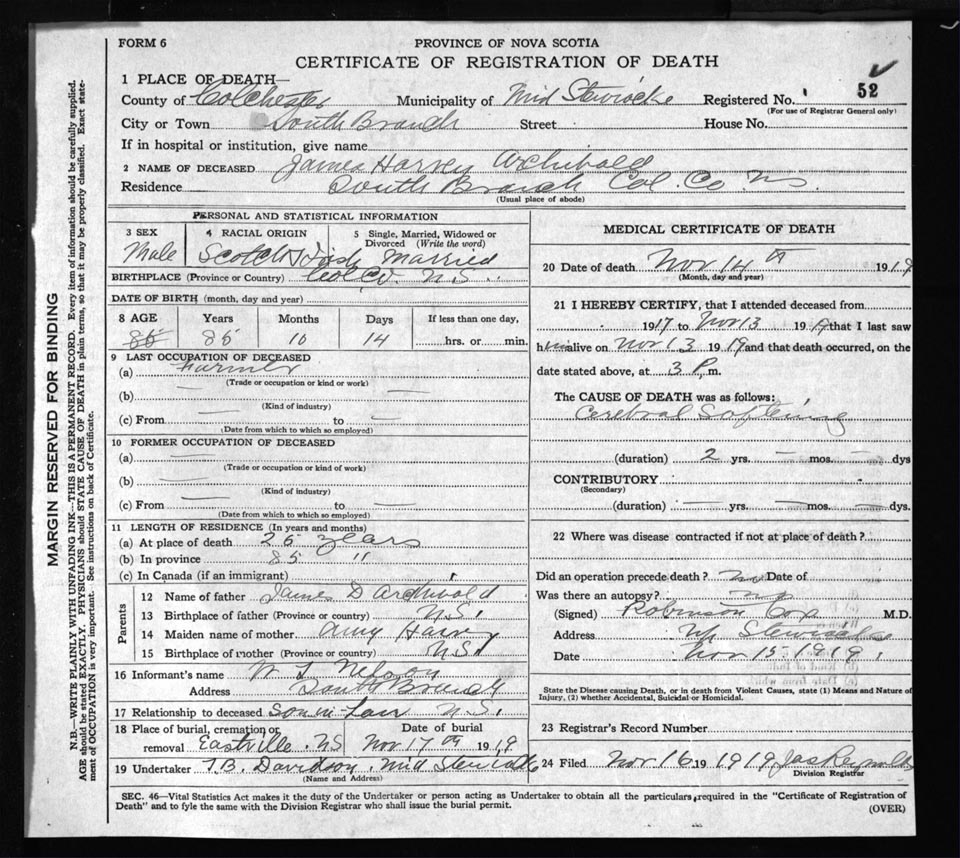 FORM 6
PROVINCE OF NOVA SCOTIA
CERTIFICATE OF REGISTRATION OF DEATH
1 PLACE OF DEATH—
52
County of Colchester Municipality of Mid Stewiacke Registered No.
(For use of Registrar General only)
City or Town South Branch Street House No.
If in hospital or institution, give name
2 NAME OF DECEASED James Harvey Archibald
Residence South Branch Col. Co. N.S.
(Usual place of abode)
PERSONAL AND STATISTICAL INFORMATION
3 SEX 4 RACIAL ORIGIN 5 Single, Married, Widowed or Divorced (Write the word)
Male Scotch & Irish Married
BIRTHPLACE (Province or Country) Col Co N.S.
DATE OF BIRTH (month, day and year)
8 AGE Years Months Days If less than one day,
85 85 10 14 hrs. or min.
9 LAST OCCUPATION OF DECEASED
(a) Farmer
(Trade or occupation or kind or work)
(b) —
(Kind of industry)
(c) From — to —
(Date from which to which so employed)
10 FORMER OCCUPATION OF DECEASED
(a) —
(Trade or occupation or kind of work)
(b) —
(Kind of industry)
(c) From — to —
(Date from which to which so employed)
11 LENGTH OF RESIDENCE (In years and months)
(a) At place of death 25 years
(b) In province 85 "
(c) In Canada (if an immigrant)
Parents
12 Name of father James D Archibald
13 Birthplace of father (Province or country) N.S.
14 Maiden name of mother Amy Harvey
15 Birthplace of mother (Province or country) N.S.
16 Informant's name W Nelson
Address South Branch
17 Relationship to deceased Son in Law N.S.
18 Place of burial, cremation or removal Eastville NS Date of burial Nov 17th 1919
19 Undertaker T.B. Davidson Mid Stewiacke
(Name and Address)
MEDICAL CERTIFICATE OF DEATH
20 Date of death Nov 14th 1919
(Month, day and year)
21 I HEREBY CERTIFY, that I attended deceased from
1917 to Nov 13 1919 that I last saw
him alive on Nov 13 1919 and that death occurred, on the
date stated above, at 3 P.m.
The CAUSE OF DEATH was as follows:
Cerebral Softening
(duration) 2 yrs. — mos. — dys
CONTRIBUTORY
(Secondary)
(duration) — yrs. — mos. — dys.
22 Where was disease contracted if not at place of death?
Did an operation precede death? no Date of
Was there an autopsy? no
(Signed) Robinson Cox M.D.
Address Up Stewiacke
Date Nov 15-1919
State the Disease causing Death, or in death from Violent Causes, state (1) Means and Nature of Injury, (2) whether Accidental, Suicidal or Homicidal.
23 Registrar's Record Number
24 Filed Nov 16 1919 Jas Reynolds
Division Registrar
SEC. 46—Vital Statistics Act makes it the duty of the Undertaker or person acting as Undertaker to obtain all the particulars, required in the "Certificate of Registration of
Death" and to fyle the same with the Division Registrar who shall issue the burial permit.
(OVER)
MARGIN RESERVED FOR BINDING
N.B.—WRITE PLAINLY WITH UNFADING INK—THIS IS A PERMANENT RECORD. Every item of information should be carefully supplied.
AGE should be stated EXACTLY. PHYSICIANS should STATE CAUSE OF DEATH in plain terms, so that it may be properly classified. Exact state-
ment of OCCUPATION is very important. See instructions on back of Certificate.